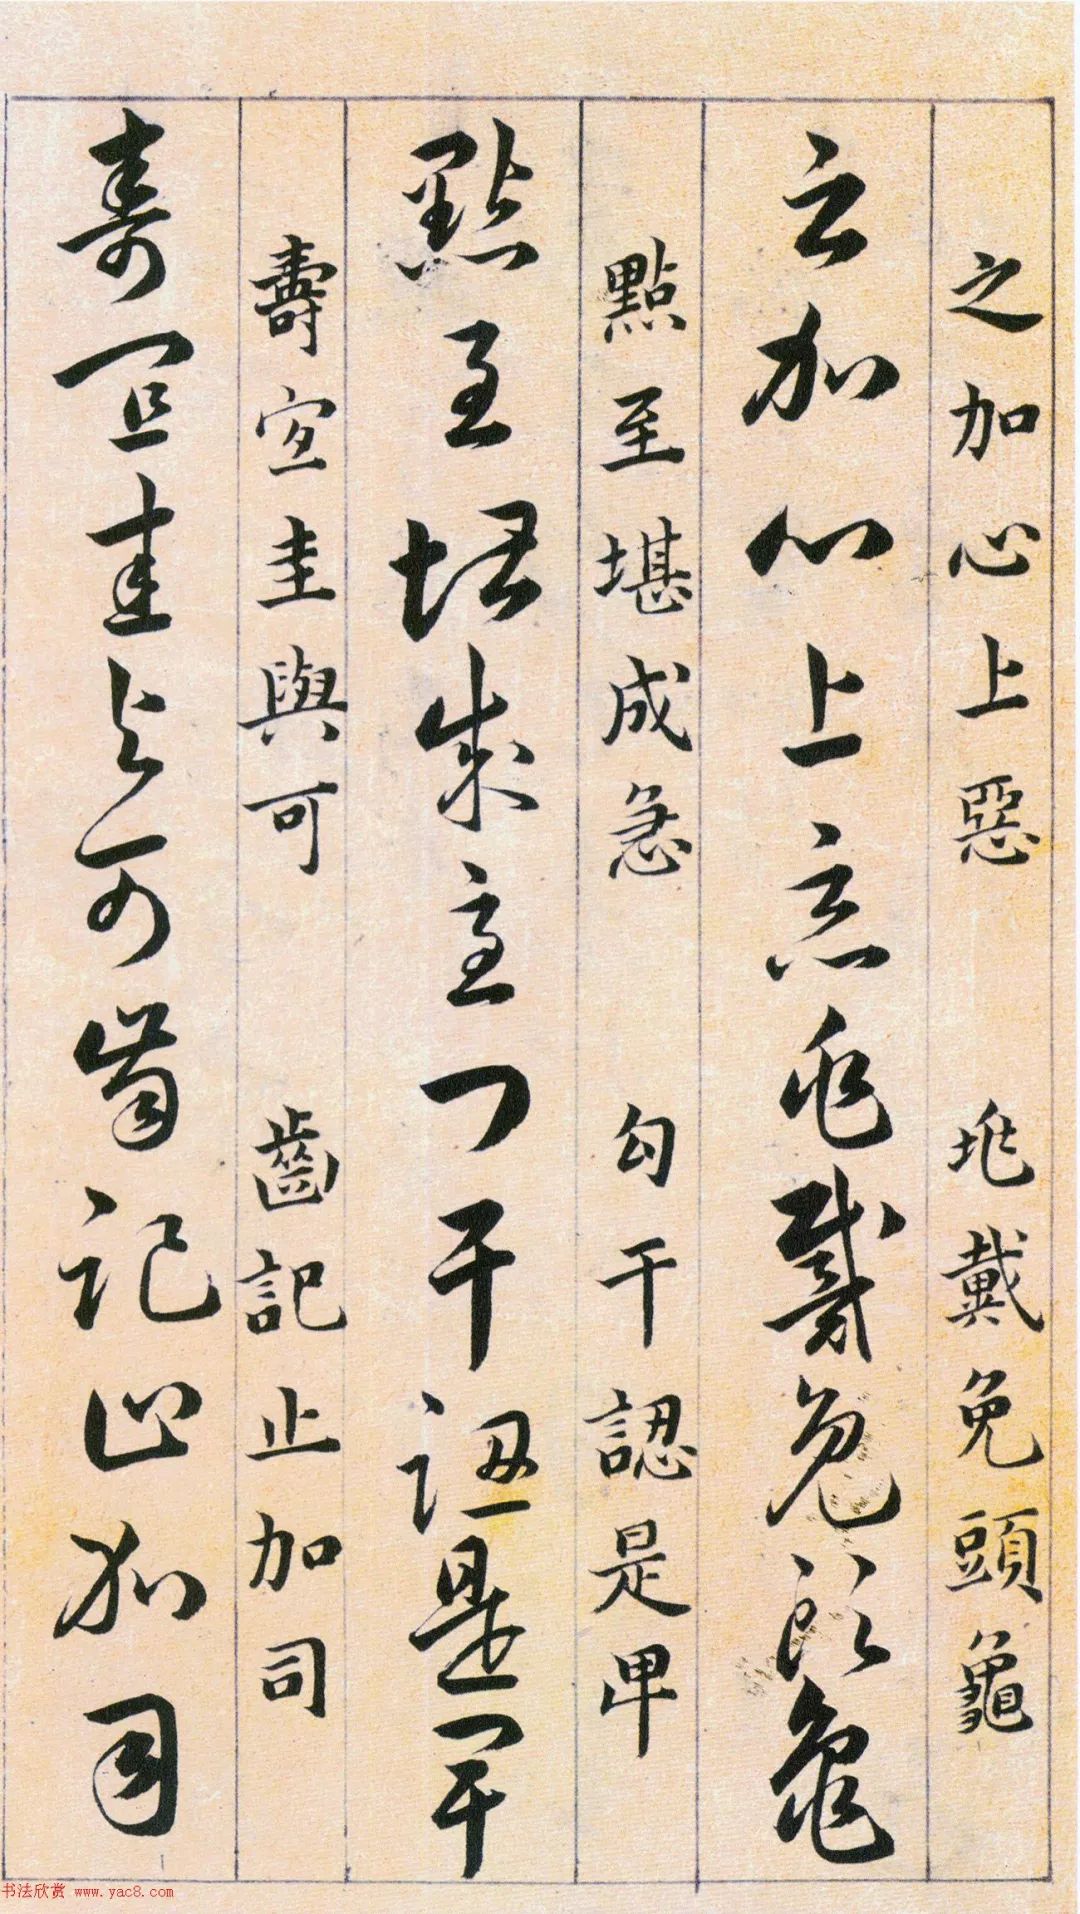 之加心上惡 戴免頭龜
之加心上惡戴免頭龜
點至堪成急 勾干認是卑
點至堪成急勾干認是卑
壽宜圭與可 齒記止加司
壽宜圭與可齒記止加司
书法欣赏 www.yac8.com